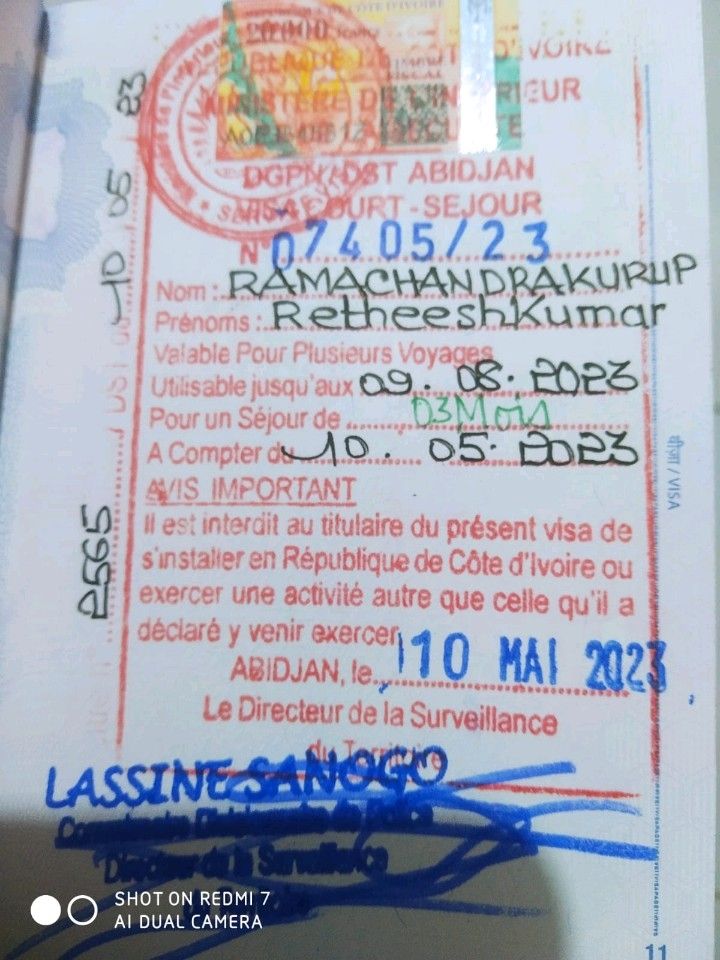 20.000
CÔTE D'IVOIRE
MINISTERE DE L'INTERIEUR
DGPN/DST ABIDJAN
VISA COURT-SEJOUR
N° 07405/23
Nom : RAMACHANDRAKURUP
Prénoms : Retheesh Kumar
Valable Pour Plusieurs Voyages
Utilisable jusqu'aux 09. 08. 2023
Pour un Séjour de 03 Mois
A Compter du 10. 05. 2023
AVIS IMPORTANT
Il est interdit au titulaire du présent visa de
s'installer en République de Côte d'Ivoire ou
exercer une activité autre que celle qu'il a
déclaré y venir exercer.
ABIDJAN, le 10 MAI 2023
Le Directeur de la Surveillance
du Territoire
LASSINE SANOGO
Directeur de la Surveillance
2565
DST du 10 05 23
वीज़ा / VISA
11
SHOT ON REDMI 7
AI DUAL CAMERA